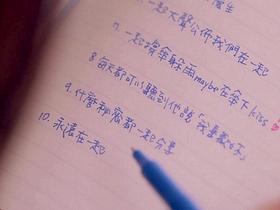 一起大聲公佈我們在一起
7. 一起撐傘躲雨maybe在傘下kiss
8. 每天都可以聽到他說「我喜歡你」
9. 什麼秘密都一起分享
10. 永遠在一起